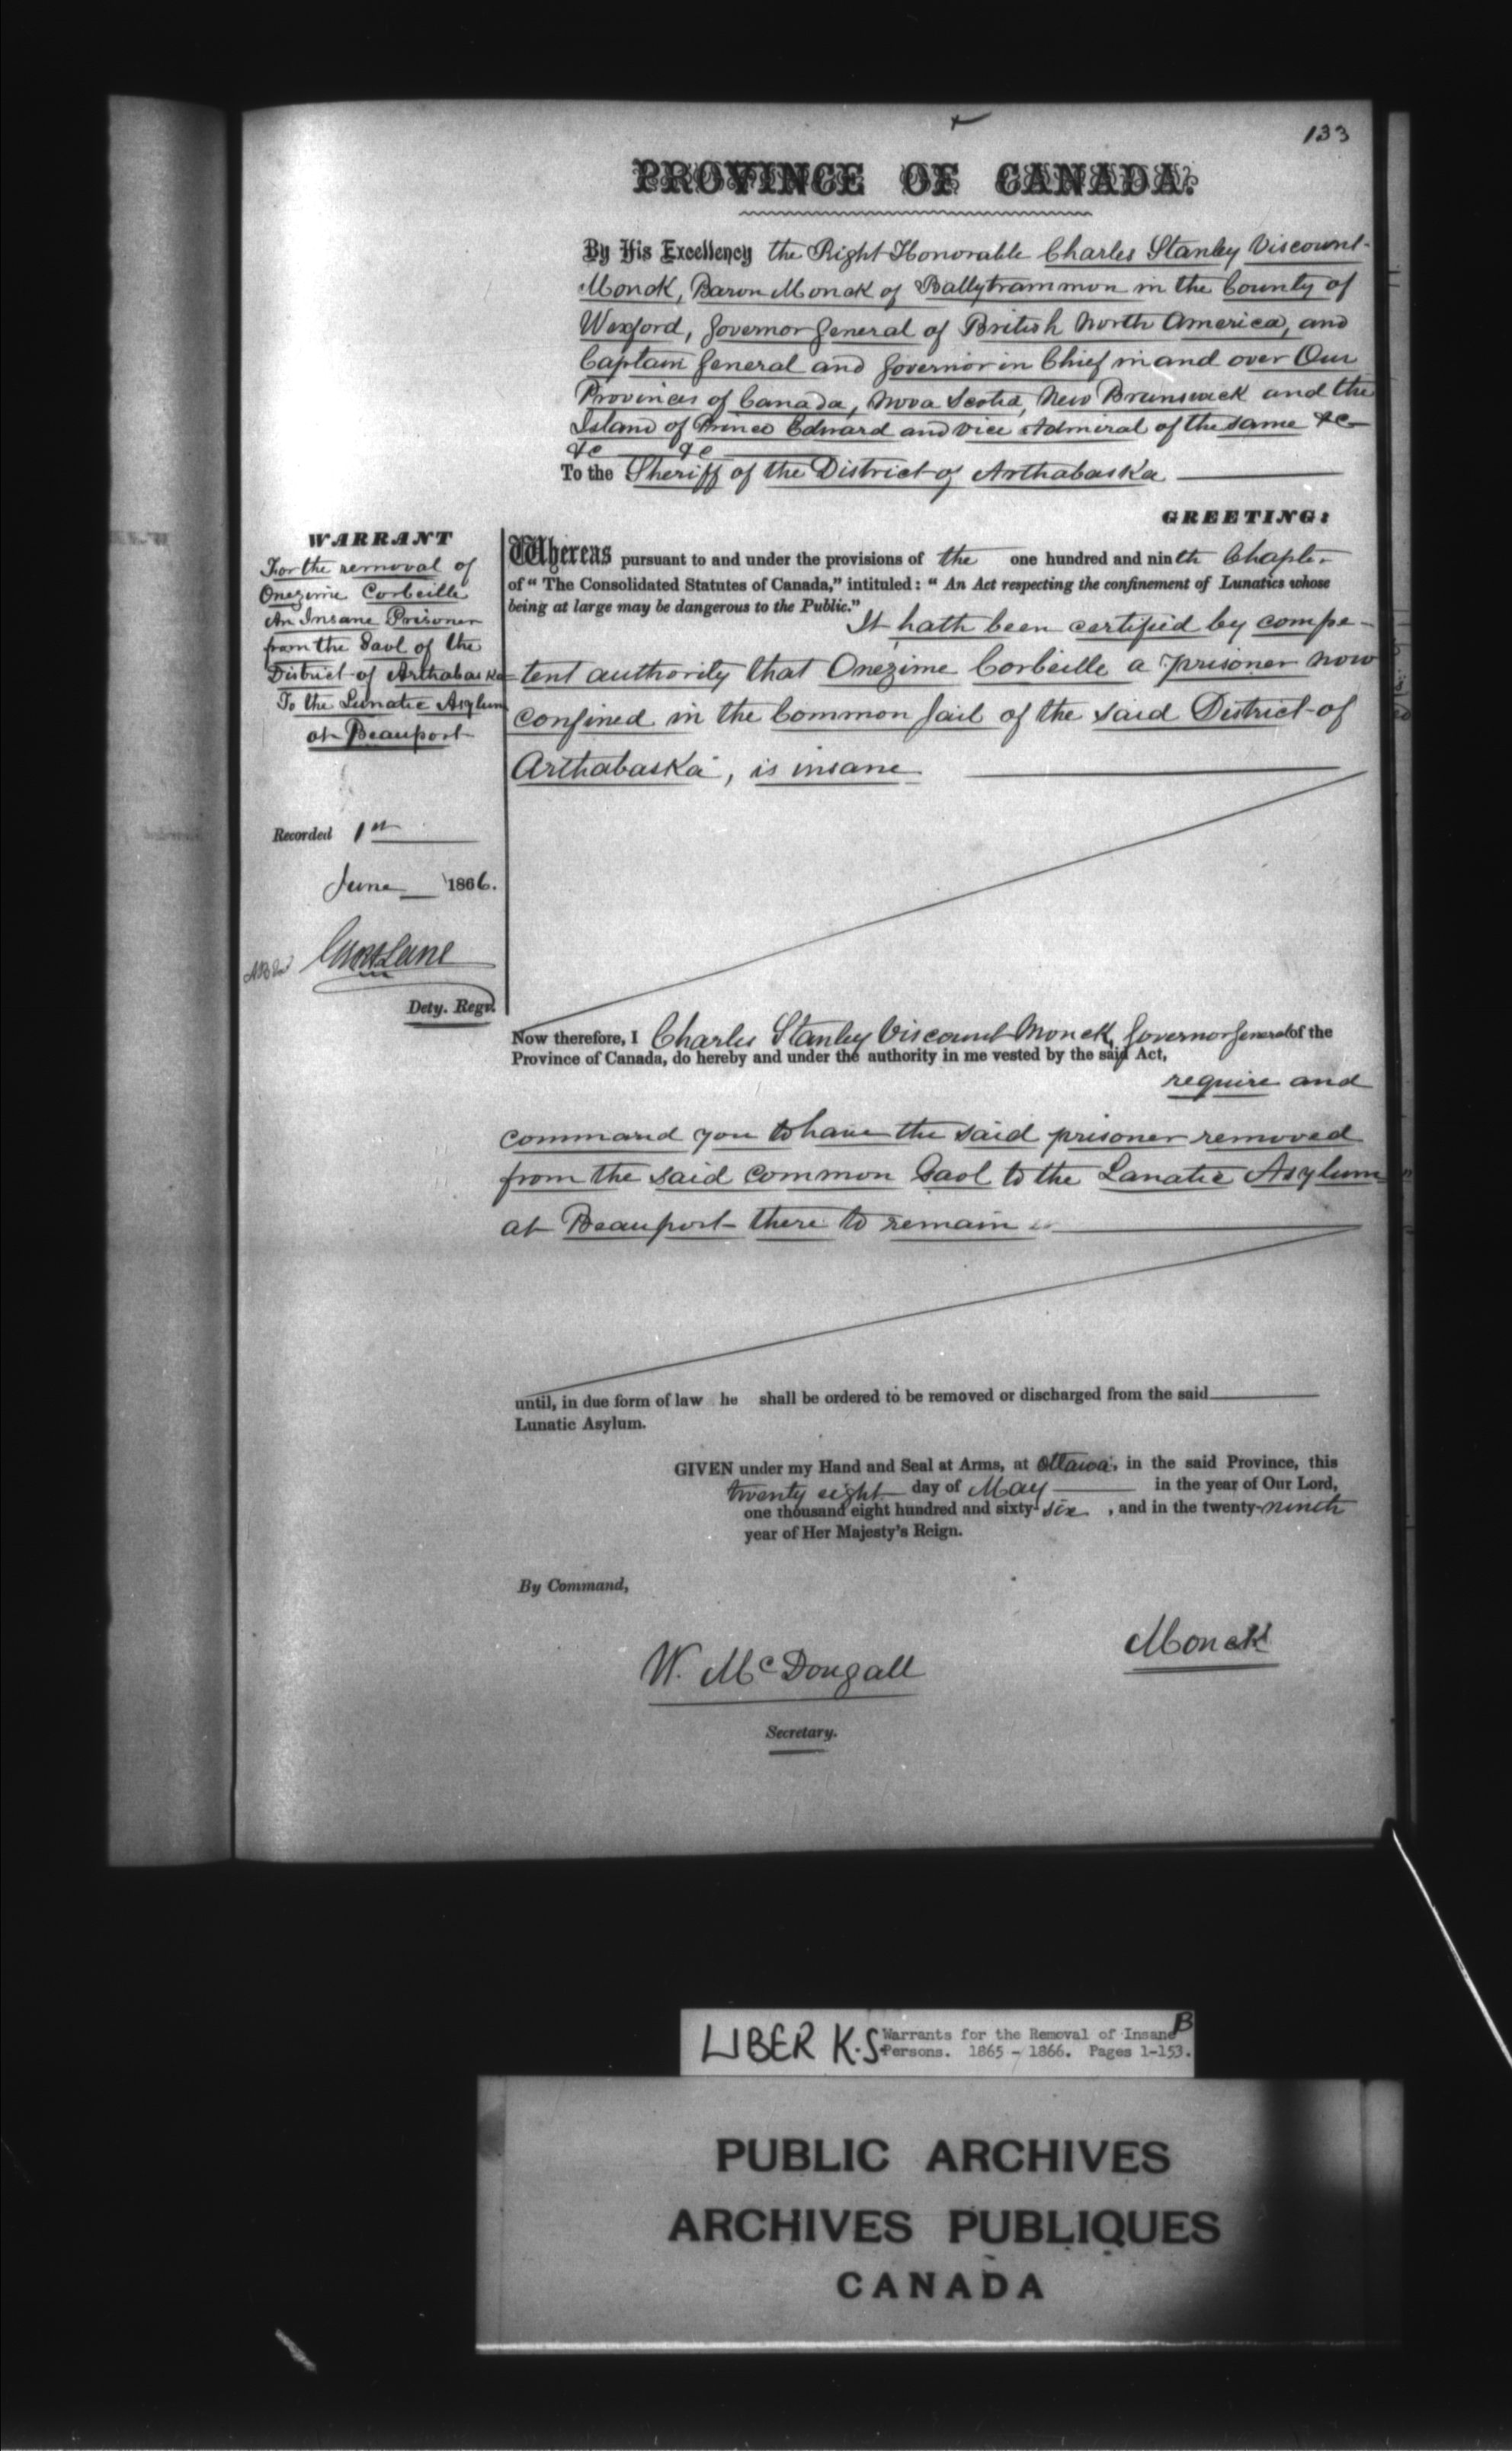 133
PROVINCE OF CANADA.
By His Excellency the Right Honorable Charles Stanley Viscount
Monck, Baron Monck of Ballytrammon in the County of
Wexford, Governor General of British North America, and
Captain General and Governor in Chief in and over Our
Provinces of Canada, Nova Scotia, New Brunswick and the
Island of Prince Edward and Vice Admiral of the same &c
&c &c
To the Sheriff of the District of Arthabaska
GREETING:
WARRANT
For the removal of
Onezime Corbeille
An Insane Prisoner
from the Gaol of the
District of Arthabaska
To the Lunatic Asylum
at Beauport
Recorded 1st
June 1866.
Dety. Regr.
Whereas pursuant to and under the provisions of the one hundred and ninth Chapter
of "The Consolidated Statutes of Canada," intituled: "An Act respecting the confinement of Lunatics whose
being at large may be dangerous to the Public."
It hath been certified by compe-
tent authority that Onezime Corbeille a prisoner now
confined in the Common Jail of the said District of
Arthabaska, is insane
Now therefore, I Charles Stanley Viscount Monck, Governor General of the
Province of Canada, do hereby and under the authority in me vested by the said Act,
require and
command you to have the said prisoner removed
from the said common Gaol to the Lanatic Asylum
at Beauport there to remain
until, in due form of law he shall be ordered to be removed or discharged from the said
Lunatic Asylum.
GIVEN under my Hand and Seal at Arms, at Ottawa, in the said Province, this
twenty eight day of May in the year of Our Lord,
one thousand eight hundred and sixty-six, and in the twenty-ninth
year of Her Majesty's Reign.
By Command,
Monck
W. McDougall
Secretary.
LIBER K.S. Warrants for the Removal of Insane B
Persons. 1865 - 1866. Pages 1-153.
PUBLIC ARCHIVES
ARCHIVES PUBLIQUES
CANADA